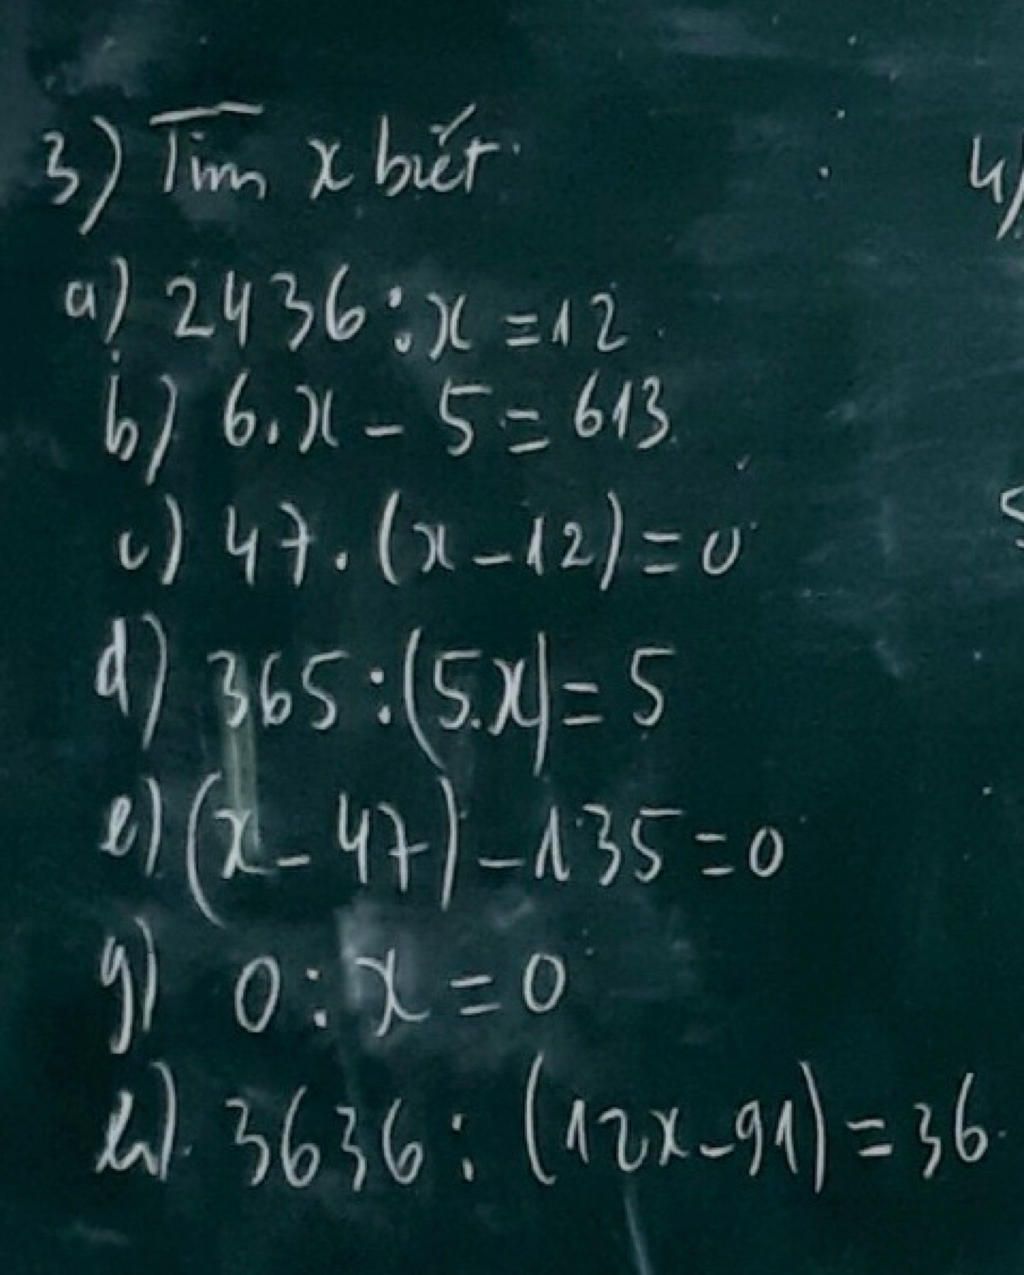 3) Tìm x biết
4)
a) 2436 : x = 12
b) 6.x - 5 = 613
c) 47.(x - 12) = 0
d) 365 : (5.x) = 5
e) (x - 47) - 135 = 0
g) 0 : x = 0
h) 3636 : (12x - 91) = 36